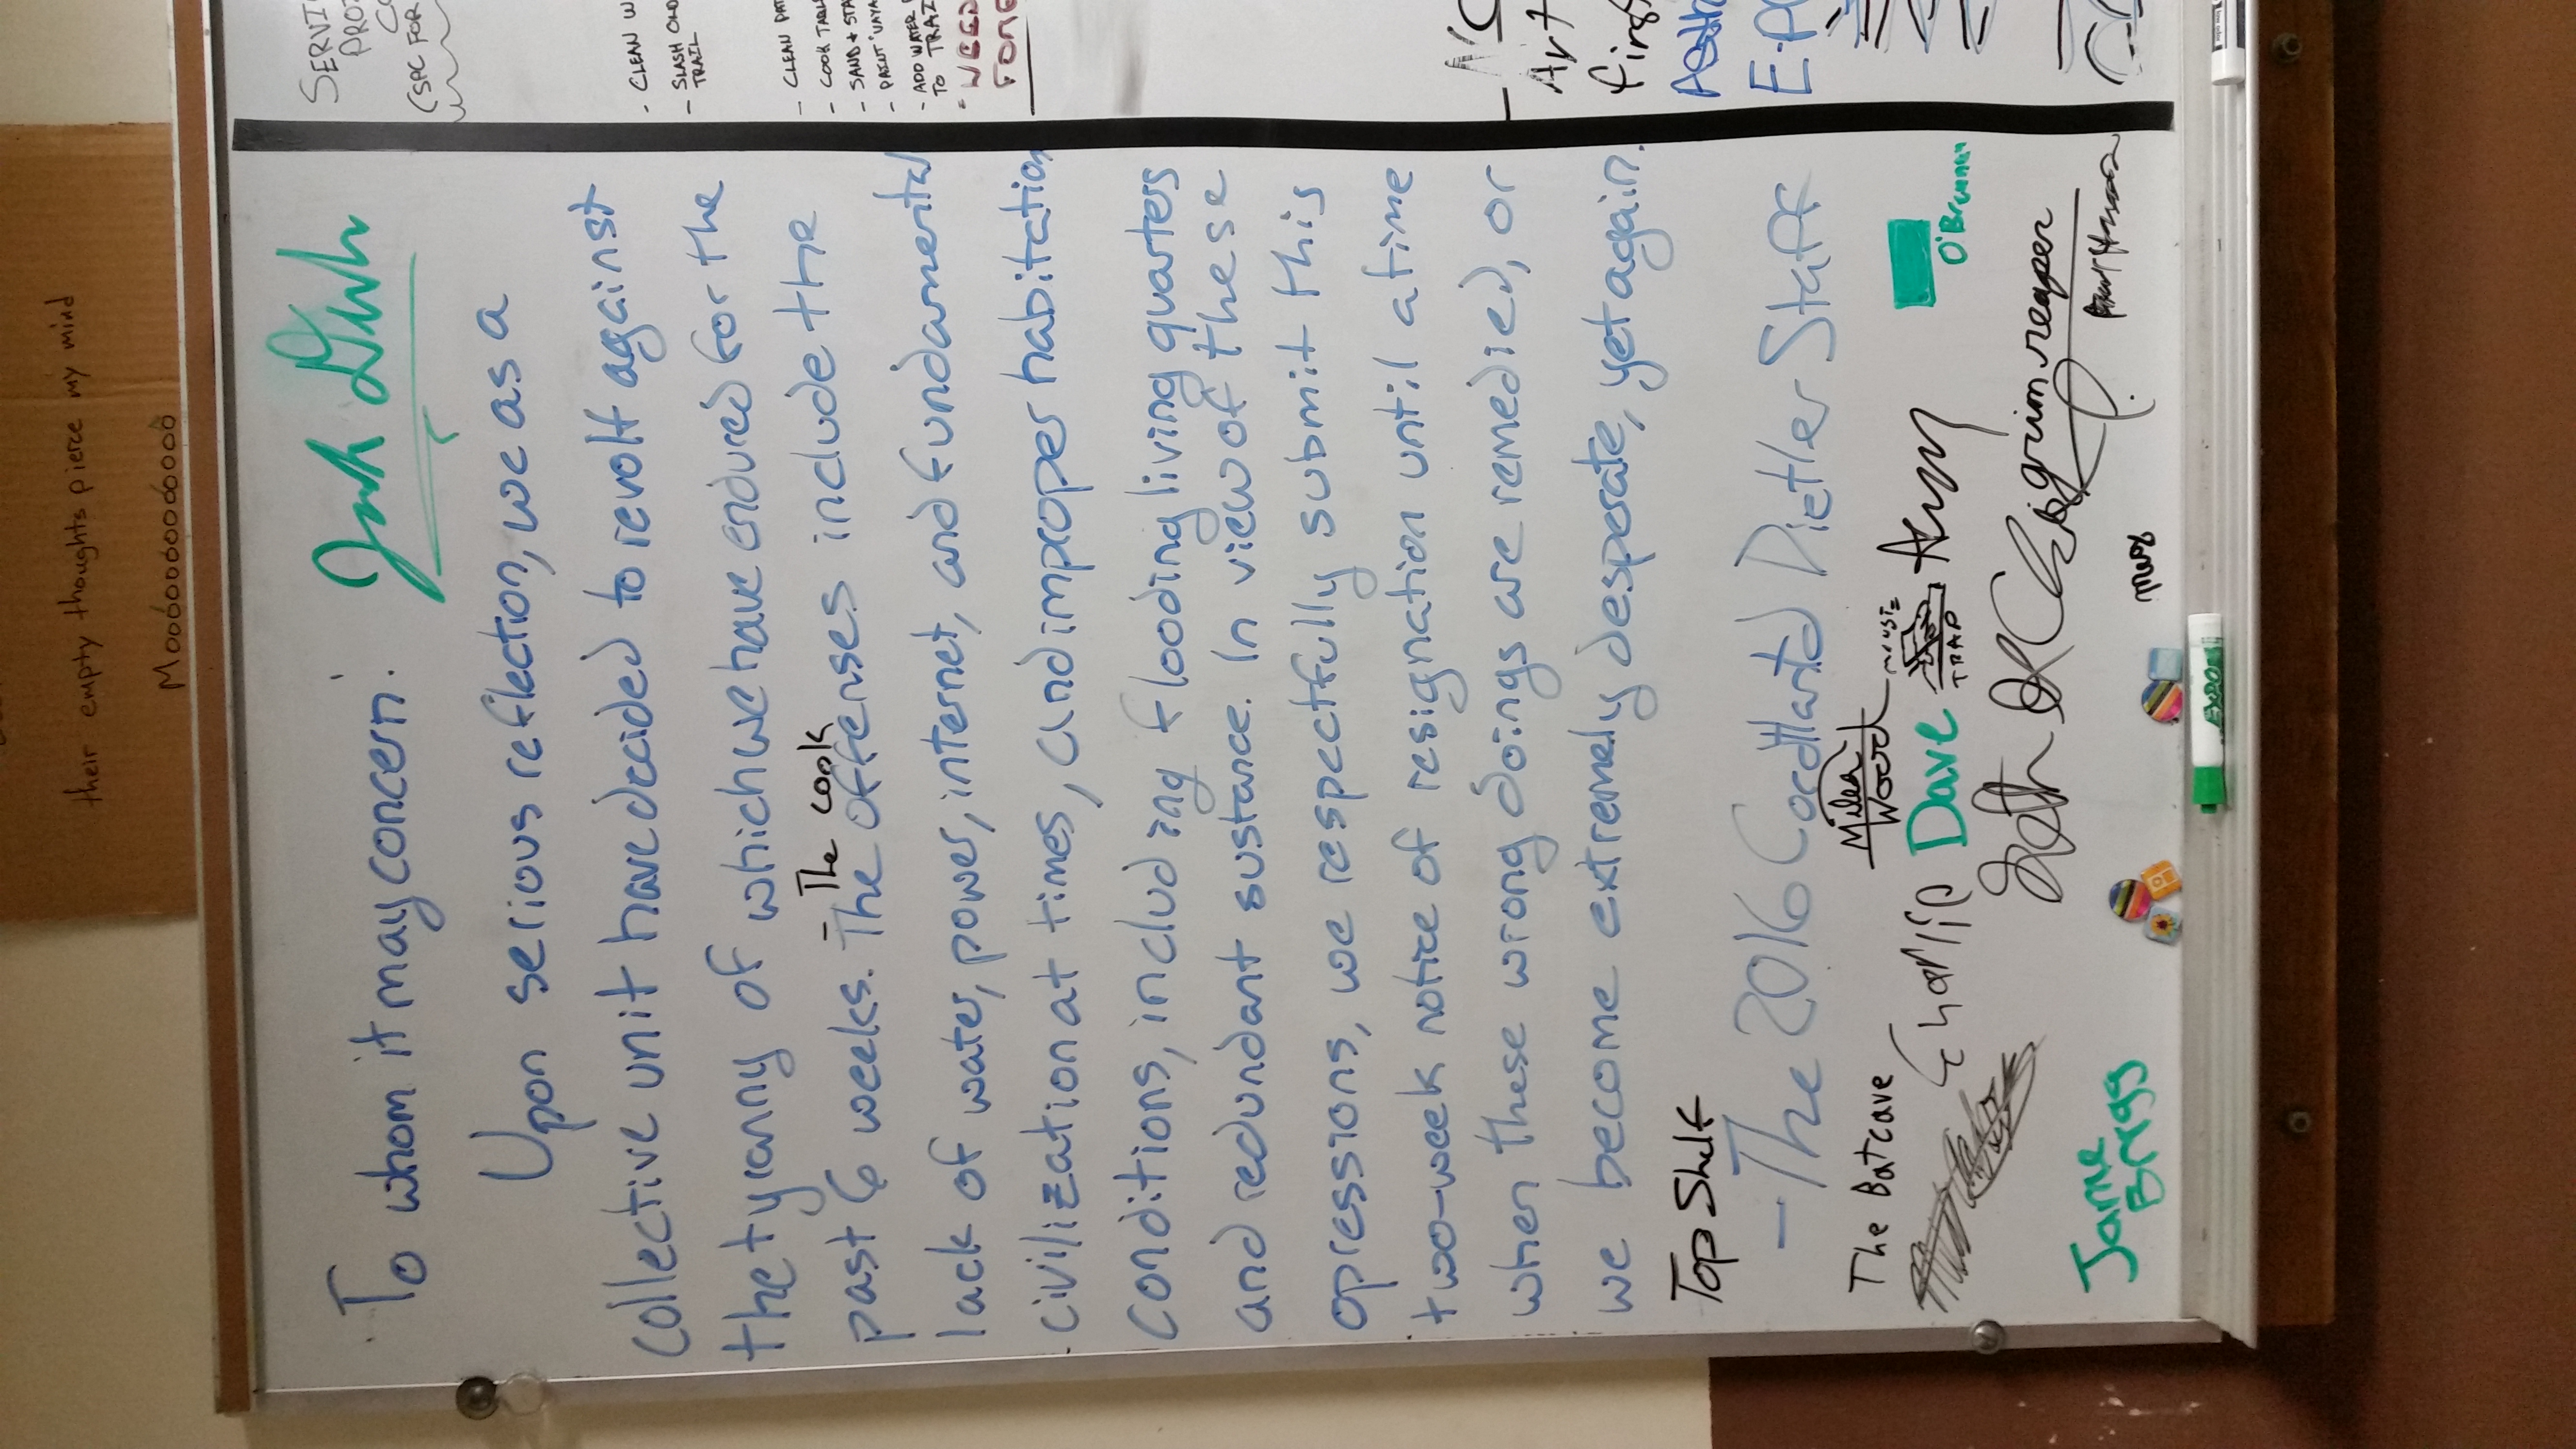 their empty thoughts pierce my mind
Moooooooooooo
To whom it may concern:
Upon serious reflection, we as a
collective unit have decided to revolt against
the tyranny of which we have endured for the
- The cook
past 6 weeks. The offenses include the
lack of water, power, internet, and fundamental
civilization at times, and improper habitation
conditions, including flooding living quarters
and redundant sustance. In view of these
opressions, we respectfully submit this
two-week notice of resignation until a time
when these wrong doings are remedied, or
we become extremely desperate, yet again.
Top Shelf
- The 2016 Dietler Staff
The Batcave
Wood
Charlie Dave
TRAP
O'Brennan
Seth
grim reaper
Jamie
Brigg
EXPO
SERVI
PROJ
CO
(SPC FOR
- CLEAN W
- SLASH OLD
TRAIL
- CLEAN PAT
- COOK TABL
- SAND + STA
- PAINT "VAYA
- ADD WATER
TO TRAI
WEED
FORE
NO
Art
firs
E-P